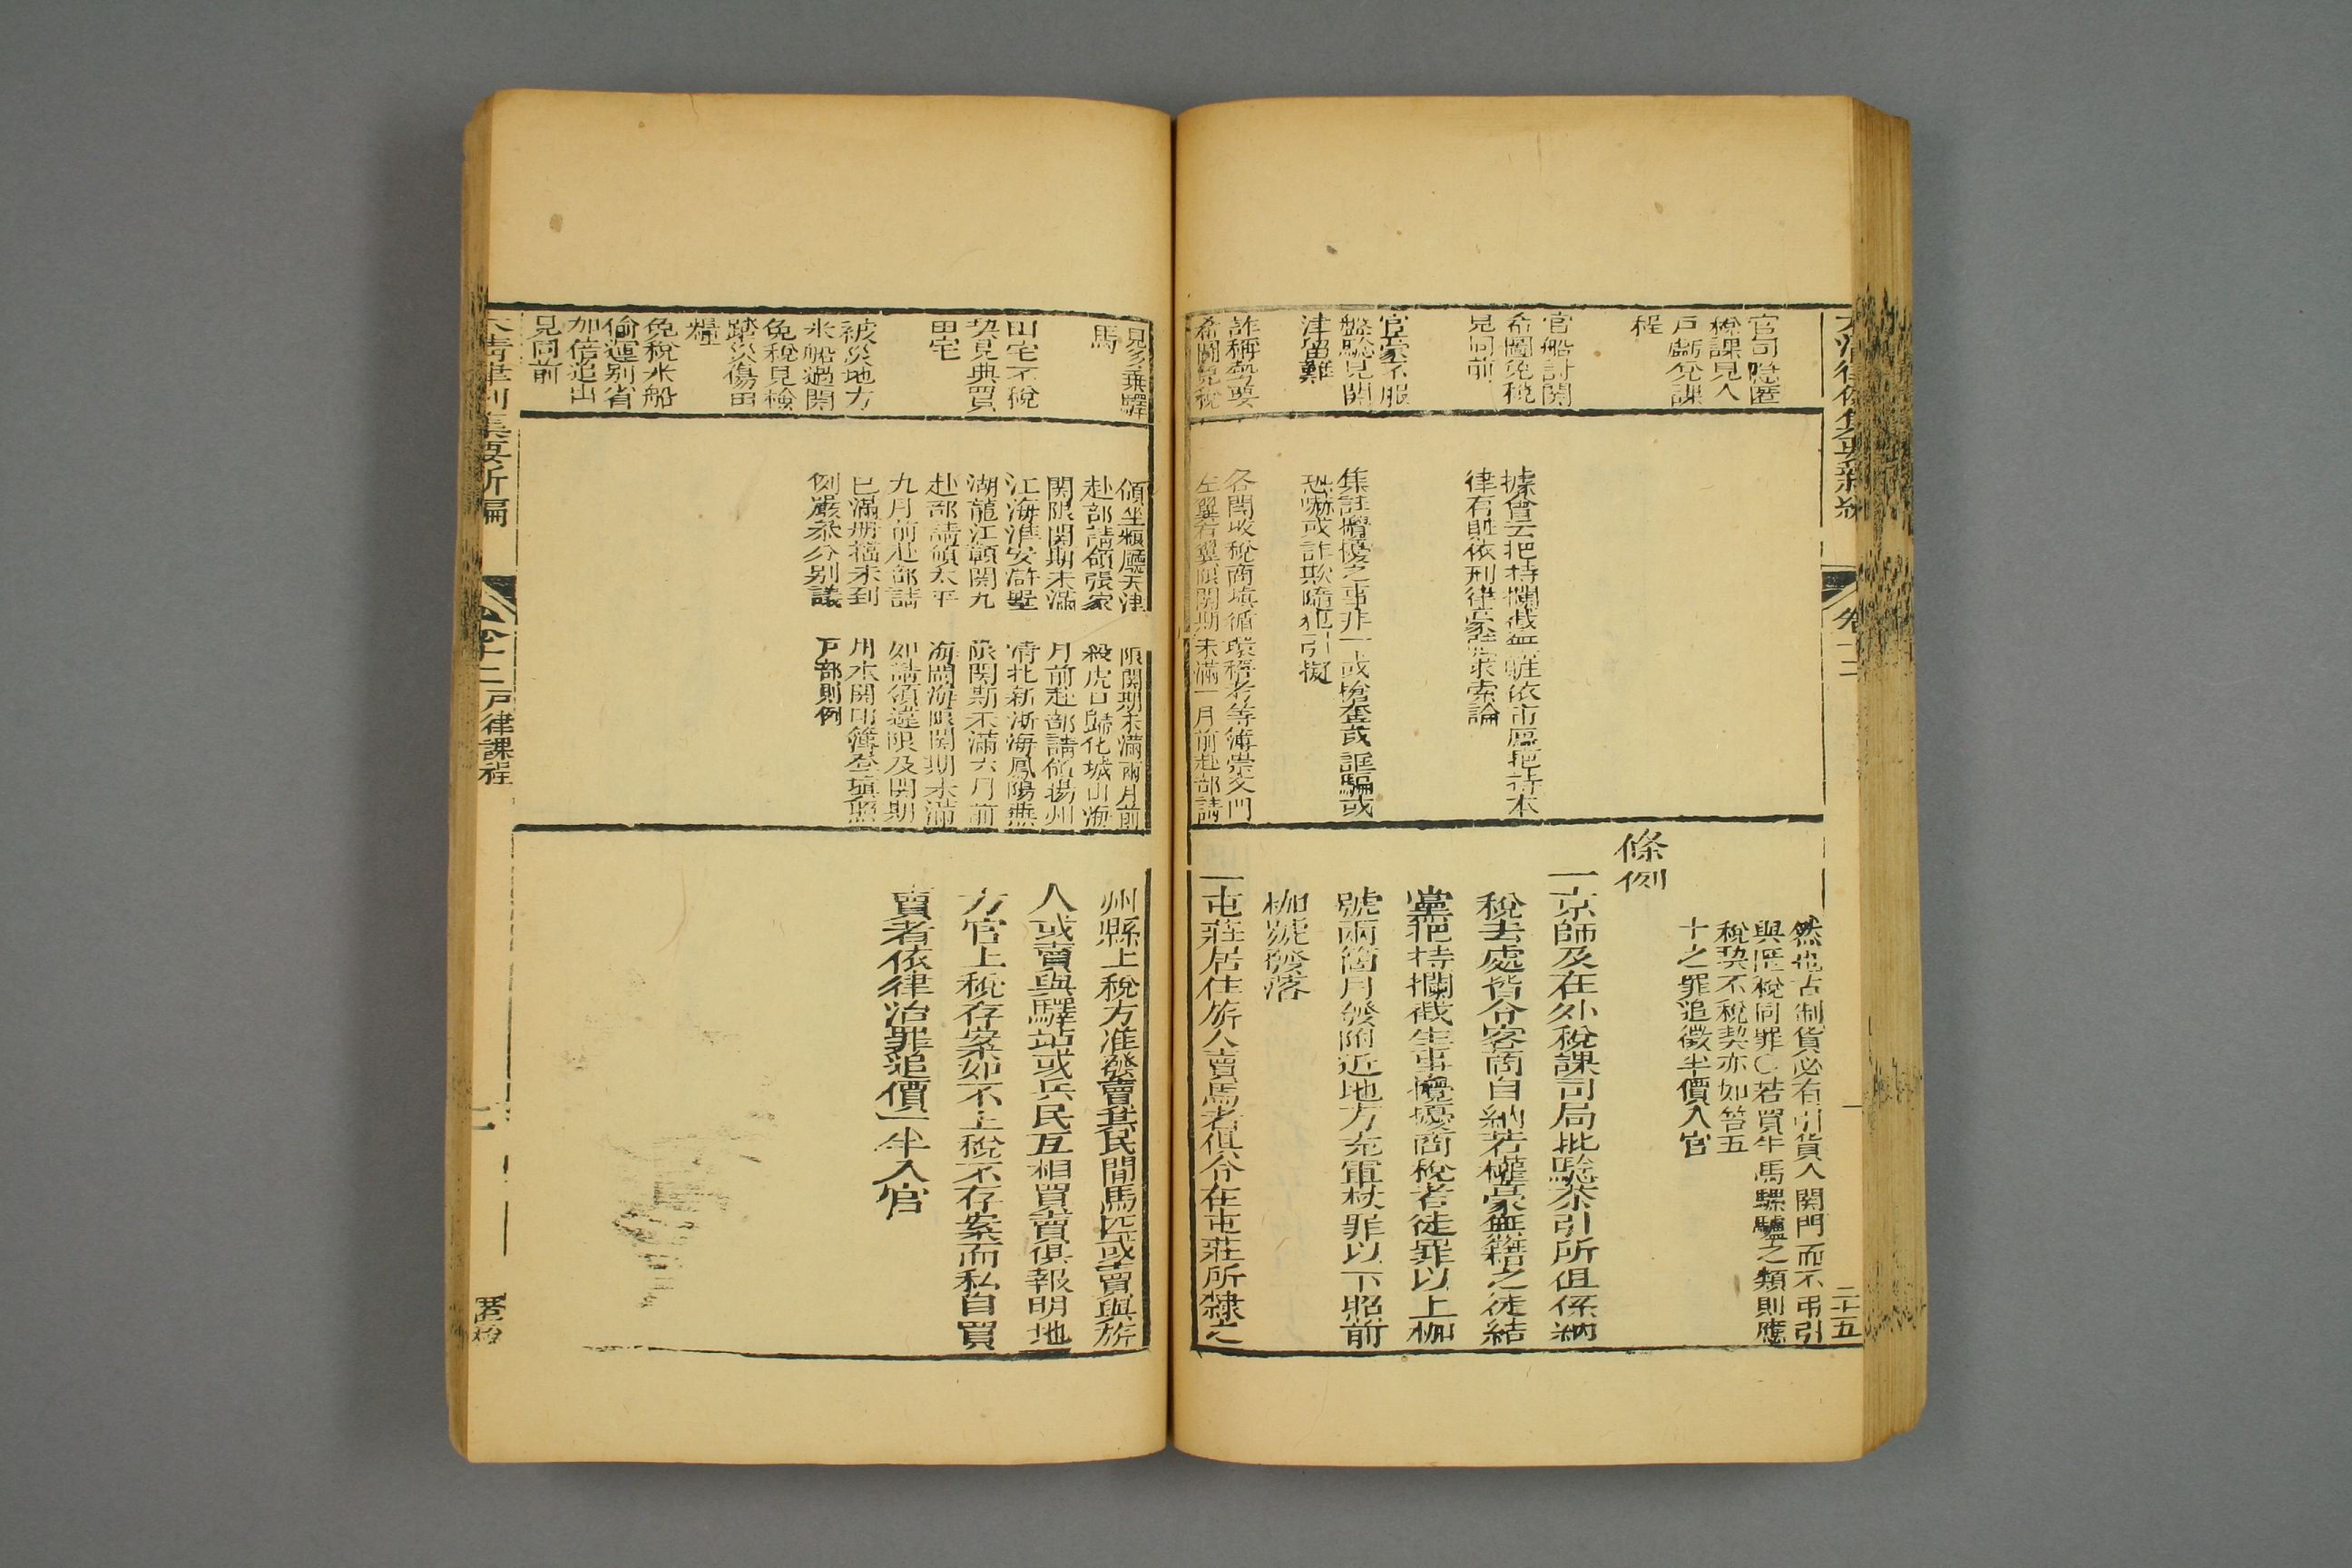 大清律例集要新編
卷十二
二十五
官司隱匿
稅課見人
戶虧兌課
程
官船討關
希圖免稅
見同前
官豪不服
盤驗見關
津留難
詐稱勢要
希圖免稅
據會云把持攔截無贓依市廛把持本
律有贓依刑律豪強求索論
集註攪擾之事非一或搶奪或誆騙或
恐嚇或詐欺隨犯引擬
各關收稅商填循環稽考等簿崇文門
左翼右翼限關期未滿一月前赴部請
然也占制貨必有引貨入關門而不弔引
與匿稅同罪○若買牛馬騾驢之類則應
稅契不稅契亦如笞五
十之罪追徵半價入官
條例
一京師及在外稅課司局批驗茶引所但係納
稅去處皆令客商自納若權豪無籍之徒結
黨把持攔截生事攪擾商稅者徒罪以上枷
號兩箇月發附近地方充軍杖罪以下照前
枷號發落
一屯莊居住旂人賣馬者俱令在屯莊所隸之
見多乘驛
馬
山宅不稅
契見典買
田宅
被災地方
米船過關
免稅見檢
踏災傷田
糧
免稅米船
偷運別省
加倍追出
見同前
領坐糧廳天津
赴部請領張家
關限關期未滿
江海淮安滸墅
湖龍江贛關九
赴部請領太平
九月前赴部請
已滿册檔未到
例嚴叅分別議
限關期未滿兩月前
殺虎口歸化城山海
月前赴部請領揚州
清北新浙海鳳陽蕪
限關期不滿六月前
海閩海限關期未滿
如請領違限及關期
用本關印簿登填照
戶部則例
州縣上稅方准發賣其民間馬匹或賣與旂
人或賣與驛站或兵民互相買賣俱報明地
方官上稅存案如不上稅不存案而私自買
賣者依律治罪追價一半入官
大清律例集要新編
卷十二 戶律課程